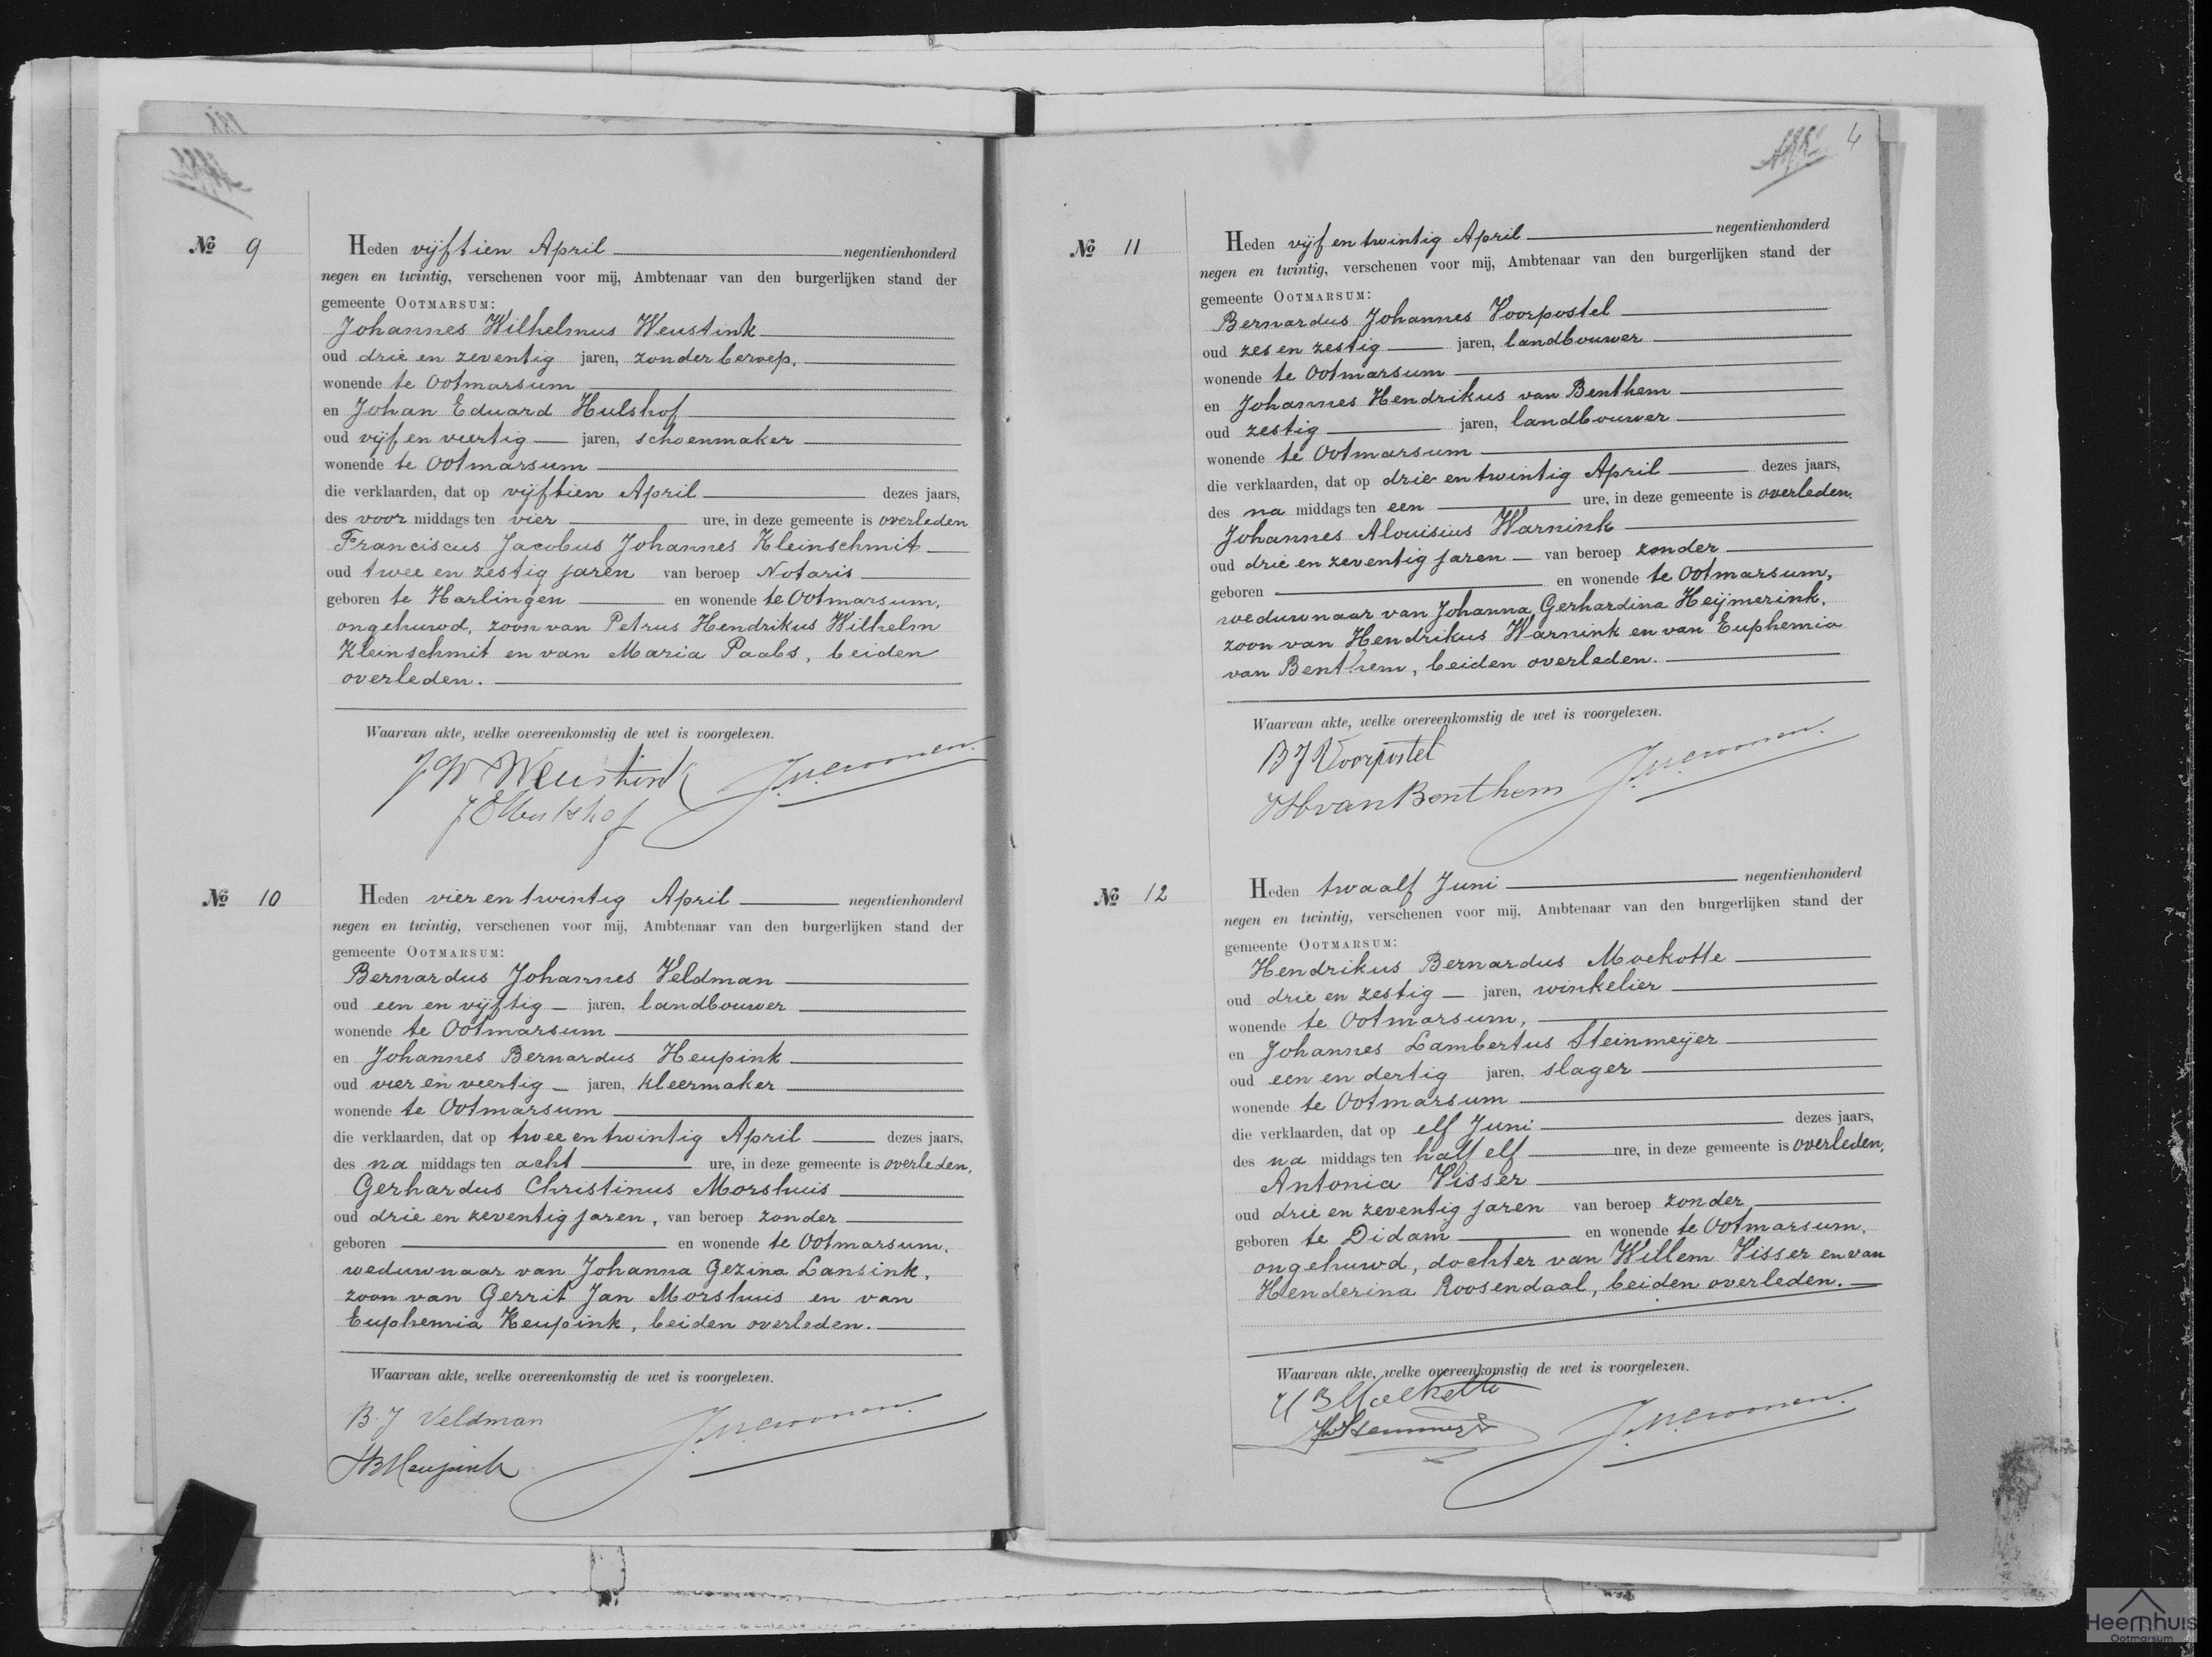 № 9
Heden vijftien April negentienhonderd
negen en twintig, verschenen voor mij, Ambtenaar van den burgerlijken stand der
gemeente OOTMARSUM:
Johannes Wilhelmus Weustink
oud drie en zeventig jaren, zonder beroep,
wonende te Ootmarsum
en Johan Eduard Hulshof
oud vijf en veertig jaren, schoenmaker
wonende te Ootmarsum
die verklaarden, dat op vijftien April dezes jaars,
des voor middags ten vier ure, in deze gemeente is overleden
Franciscus Jacobus Johannes Kleinschmit
oud twee en zestig jaren van beroep Notaris
geboren te Harlingen en wonende te Ootmarsum,
ongehuwd, zoon van Petrus Hendrikus Wilhelm
Kleinschmit en van Maria Paals, beiden
overleden.
Waarvan akte, welke overeenkomstig de wet is voorgelezen.
J W Weustink
J E Hulshof
№ 10
Heden vier en twintig April negentienhonderd
negen en twintig, verschenen voor mij, Ambtenaar van den burgerlijken stand der
gemeente OOTMARSUM:
Bernardus Johannes Veldman
oud een en vijftig jaren, landbouwer
wonende te Ootmarsum
en Johannes Bernardus Heupink
oud vier en veertig jaren, kleermaker
wonende te Ootmarsum
die verklaarden, dat op twee en twintig April dezes jaars,
des na middags ten acht ure, in deze gemeente is overleden,
Gerhardus Christinus Morshuis
oud drie en zeventig jaren, van beroep zonder
geboren en wonende te Ootmarsum,
weduwnaar van Johanna Gezina Lansink,
zoon van Gerrit Jan Morshuis en van
Euphemia Heupink, beiden overleden.
Waarvan akte, welke overeenkomstig de wet is voorgelezen.
B. J Veldman
JBHeupink
4
№ 11
Heden vijf en twintig April negentienhonderd
negen en twintig, verschenen voor mij, Ambtenaar van den burgerlijken stand der
gemeente OOTMARSUM:
Bernardus Johannes Voorpostel
oud zes en zestig jaren, landbouwer
wonende te Ootmarsum
en Johannes Hendrikus van Benthem
oud zestig jaren, landbouwer
wonende te Ootmarsum
die verklaarden, dat op drie en twintig April dezes jaars,
des na middags ten een ure, in deze gemeente is overleden.
Johannes Alouisius Warnink
oud drie en zeventig jaren van beroep zonder
geboren en wonende te Ootmarsum,
weduwnaar van Johanna Gerhardina Heijmerink,
zoon van Hendrikus Warnink en van Euphemia
van Benthem, beiden overleden.
Waarvan akte, welke overeenkomstig de wet is voorgelezen.
B J Voorpostel
JHvanBenthem
№ 12
Heden twaalf Juni negentienhonderd
negen en twintig, verschenen voor mij, Ambtenaar van den burgerlijken stand der
gemeente OOTMARSUM:
Hendrikus Bernardus Moekotte
oud drie en zestig jaren, winkelier
wonende te Ootmarsum,
en Johannes Lambertus Steinmeijer
oud een en dertig jaren, slager
wonende te Ootmarsum
die verklaarden, dat op elf Juni dezes jaars,
des na middags ten half elf ure, in deze gemeente is overleden,
Antonia Visser
oud drie en zeventig jaren van beroep zonder
geboren te Didam en wonende te Ootmarsum,
ongehuwd, dochter van Willem Visser en van
Henderina Roosendaal, beiden overleden.
Waarvan akte, welke overeenkomstig de wet is voorgelezen.
H B Moekotte
Heemhuis
Ootmarsum